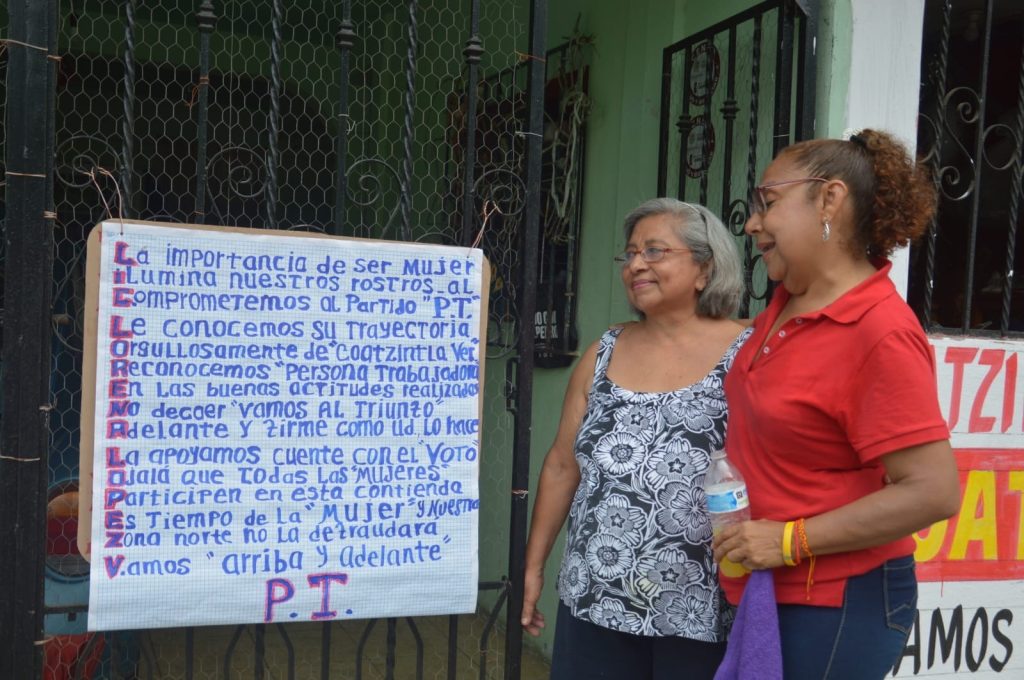 La importancia de ser Mujer
ilumina nuestros rostros al
comprometemos al Partido "P.T."
Le conocemos su Trayectoria
orgullosamente de "Coatzintla Ver.
Reconocemos "Persona Trabajadora
En Las buenas actitudes realizadas
No decaer "vamos Al Triunzo"
Adelante y zirme como ud. Lo hace
La apoyamos cuente con el "Voto"
Ojalá que Todas Las "Mujeres"
Participen en esta contienda
Es Tiempo de La "Mujer" y Nuestra
Zona norte no La dezraudara
V.amos "arriba y adelante"
P.T.
TZI
AT
AMOS